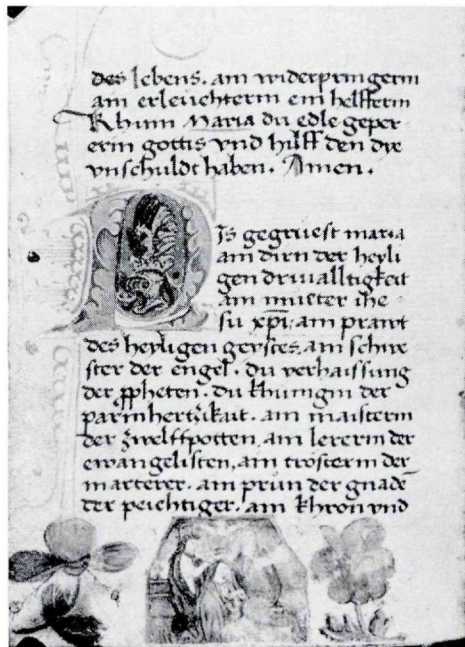 des lebens. am widerpringerin
am erleuchterin ein helfferin
Khum Maria du edle geper
erin gottis vnd hilff den dye
vnschuldt haben. Amen.
Is gegruest maria
am dirn der heyli
gen driualltigkeit
am mutter ihe
su xp̅i, am prawt
des heyligen geystes, am schwe
ster der engel. du verhaissung
der ꝓpheten. du khunigin der
parmhertzikait. am maisterin
der zwelffpotten, am lererin der
ewangelisten, am trosterin der
marterer. am prun der gnade
der peichtiger. am khron vnd